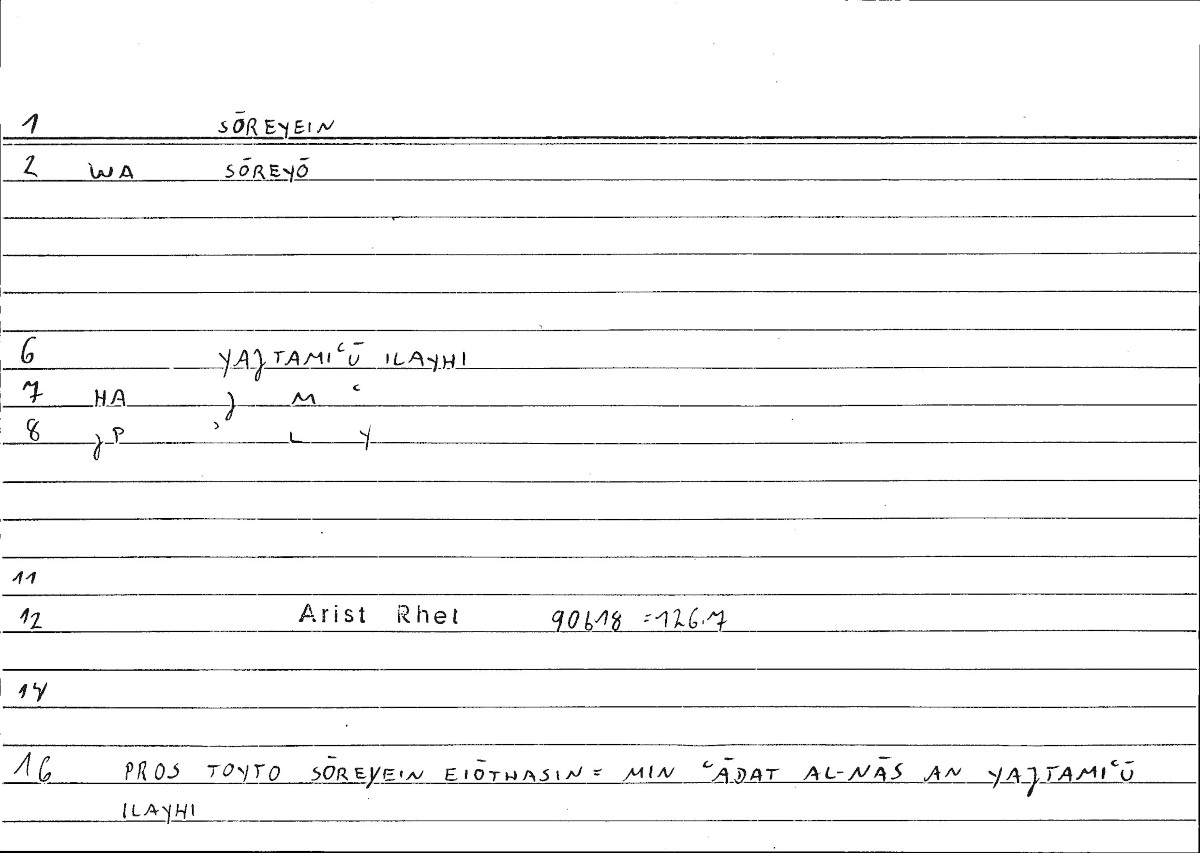 1 SŌREYEIN
2 WA SŌREYŌ
6 YAJTAMIʿŪ ILAYHI
7 HA J M ʿ
8 JP ʾ L Y
11
12 Arist Rhet 90b18 =126.7
14
16 PROS TOYTO SŌREYEIN EIŌTHASIN = MIN ʿĀDAT AL-NĀS AN YAJTAMIʿŪ
ILAYHI